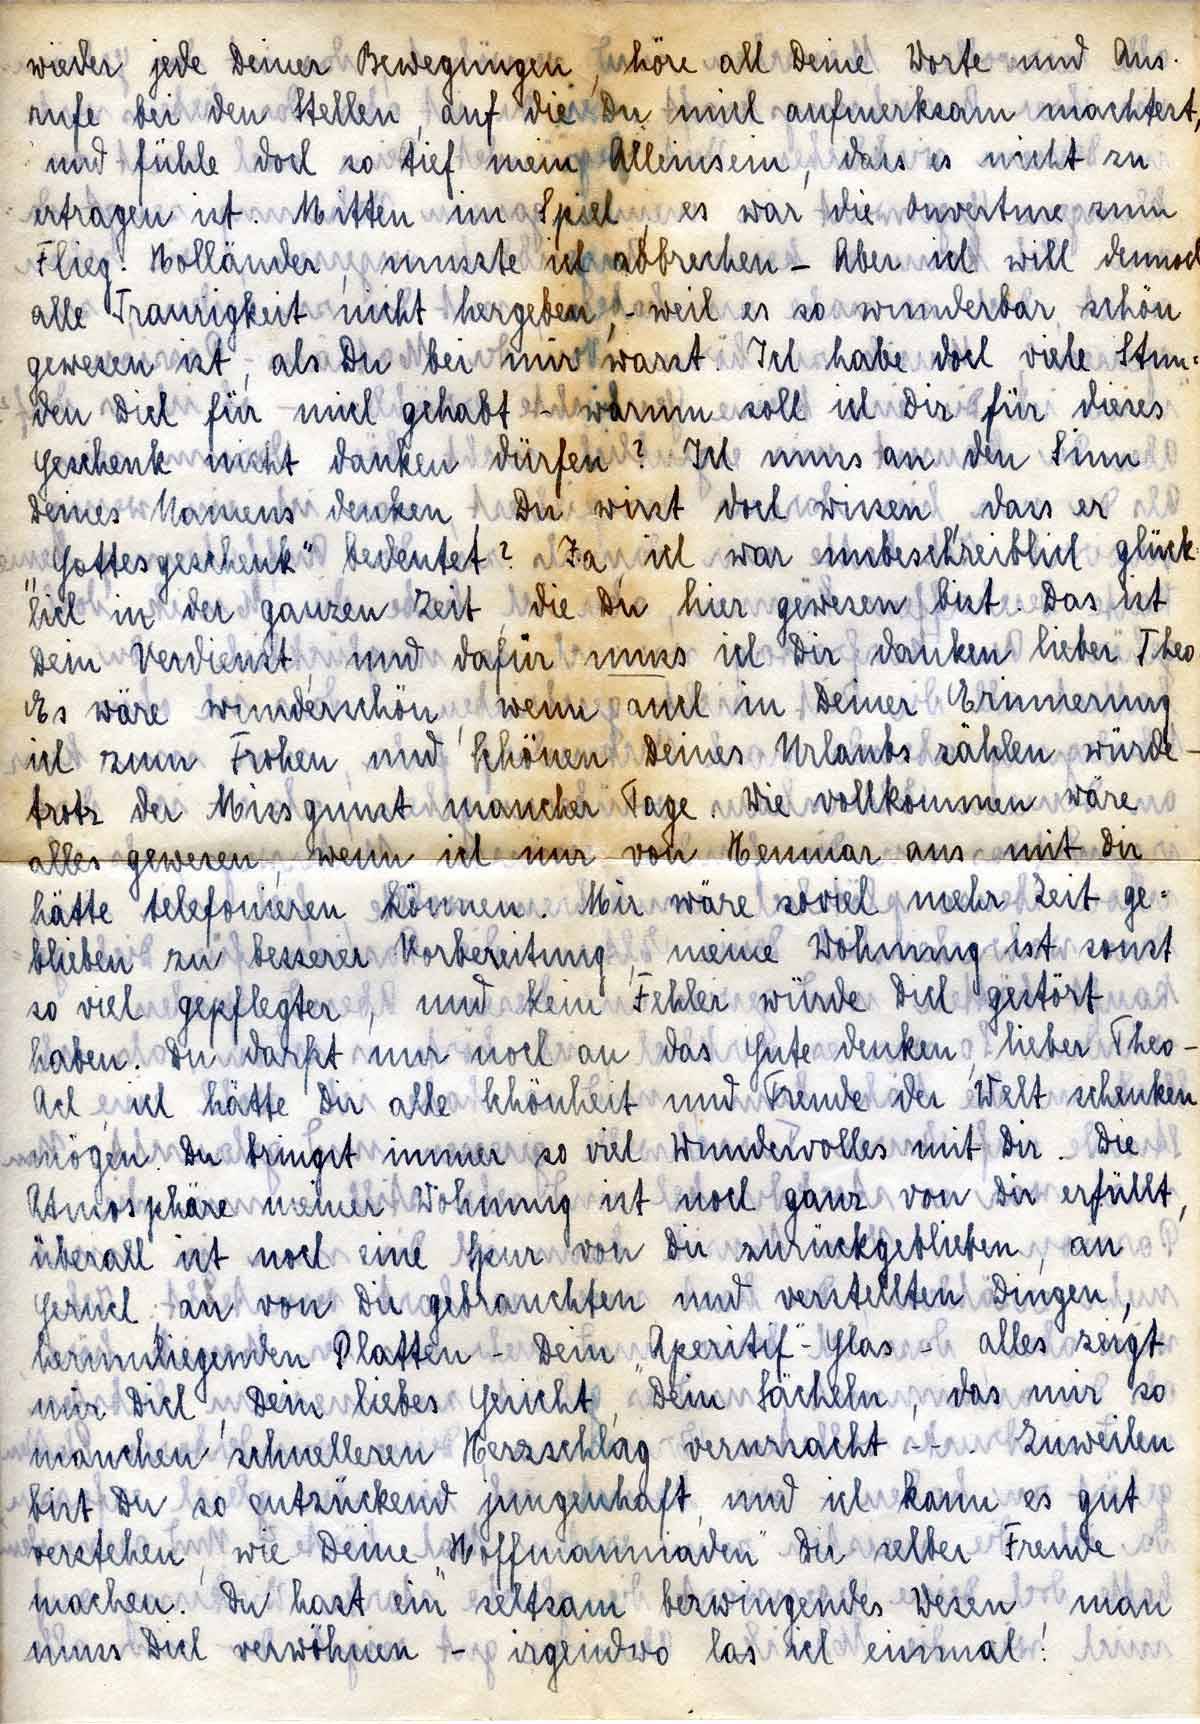 wieder jede Deiner Bewegungen, höre all Deine Worte und Aus-
rufe bei den Stellen, auf die Du mich aufmerksam machtest,
und fühle doch so tief mein Alleinsein, dass es nicht zu
ertragen ist. Mitten im Spiel, es war die Ouverture zum
Flieg. Holländer, musste ich abbrechen – Aber ich will dennoch
alle Traurigkeit nicht hergeben, – weil es so wunderbar schön
gewesen ist, als Du bei mir warst. Ich habe doch viele Stun=
den Dich für mich gehabt – warum soll ich Dir für dieses
Geschenk nicht danken dürfen? Ich muss an den Sinn
Deines Namens denken, Du wirst doch wissen, dass er
„Gottesgeschenk" bedeutet? Ja, ich war unbeschreiblich glück-
lich in der ganzen Zeit, die Du hier gewesen bist. Das ist
Dein Verdienst, und dafür muss ich Dir danken lieber Theo
Es wäre wunderschön, wenn auch in Deiner Erinnerung
ich zum Frohen und Schönen Deines Urlaubs zählen würde –
trotz der Missgunst mancher Tage. Wie vollkommen wäre
alles gewesen, wenn ich nur von aus mit Dir
hätte telefonieren können. Mir wäre soviel mehr Zeit ge=
blieben zu besserer Vorbereitung, meine Wohnung ist sonst
so viel gepflegter, und kein Fehler würde Dich gestört
haben. Du darfst nur noch an das Gute denken, lieber Theo –
Ach, ich hätte Dir alle Schönheit und Freude der Welt schenken
mögen. Du bringst immer so viel Wundervolles mit Dir. Die
Atmosphäre meiner Wohnung ist noch ganz von Dir erfüllt,
überall ist noch eine Spur von Dir zurückgeblieben, an
Geruch, an von Dir gebrauchten und verstellten Dingen,
herumliegenden Platten – Dein „Aperitif"-Glas – alles zeigt
mir Dich, Dein liebes Gesicht, Dein Lächeln, das mir so
manchen schnelleren Herzschlag verursacht – –. Zuweilen
bist Du so entzückend jungenhaft, und ich kann es gut
verstehen, wie Deine „Hoffmanniaden" Dir selber Freude
machen. Du hast ein seltsam bezwingendes Wesen man
muss Dich verwöhnen – irgendwo las ich einmal: